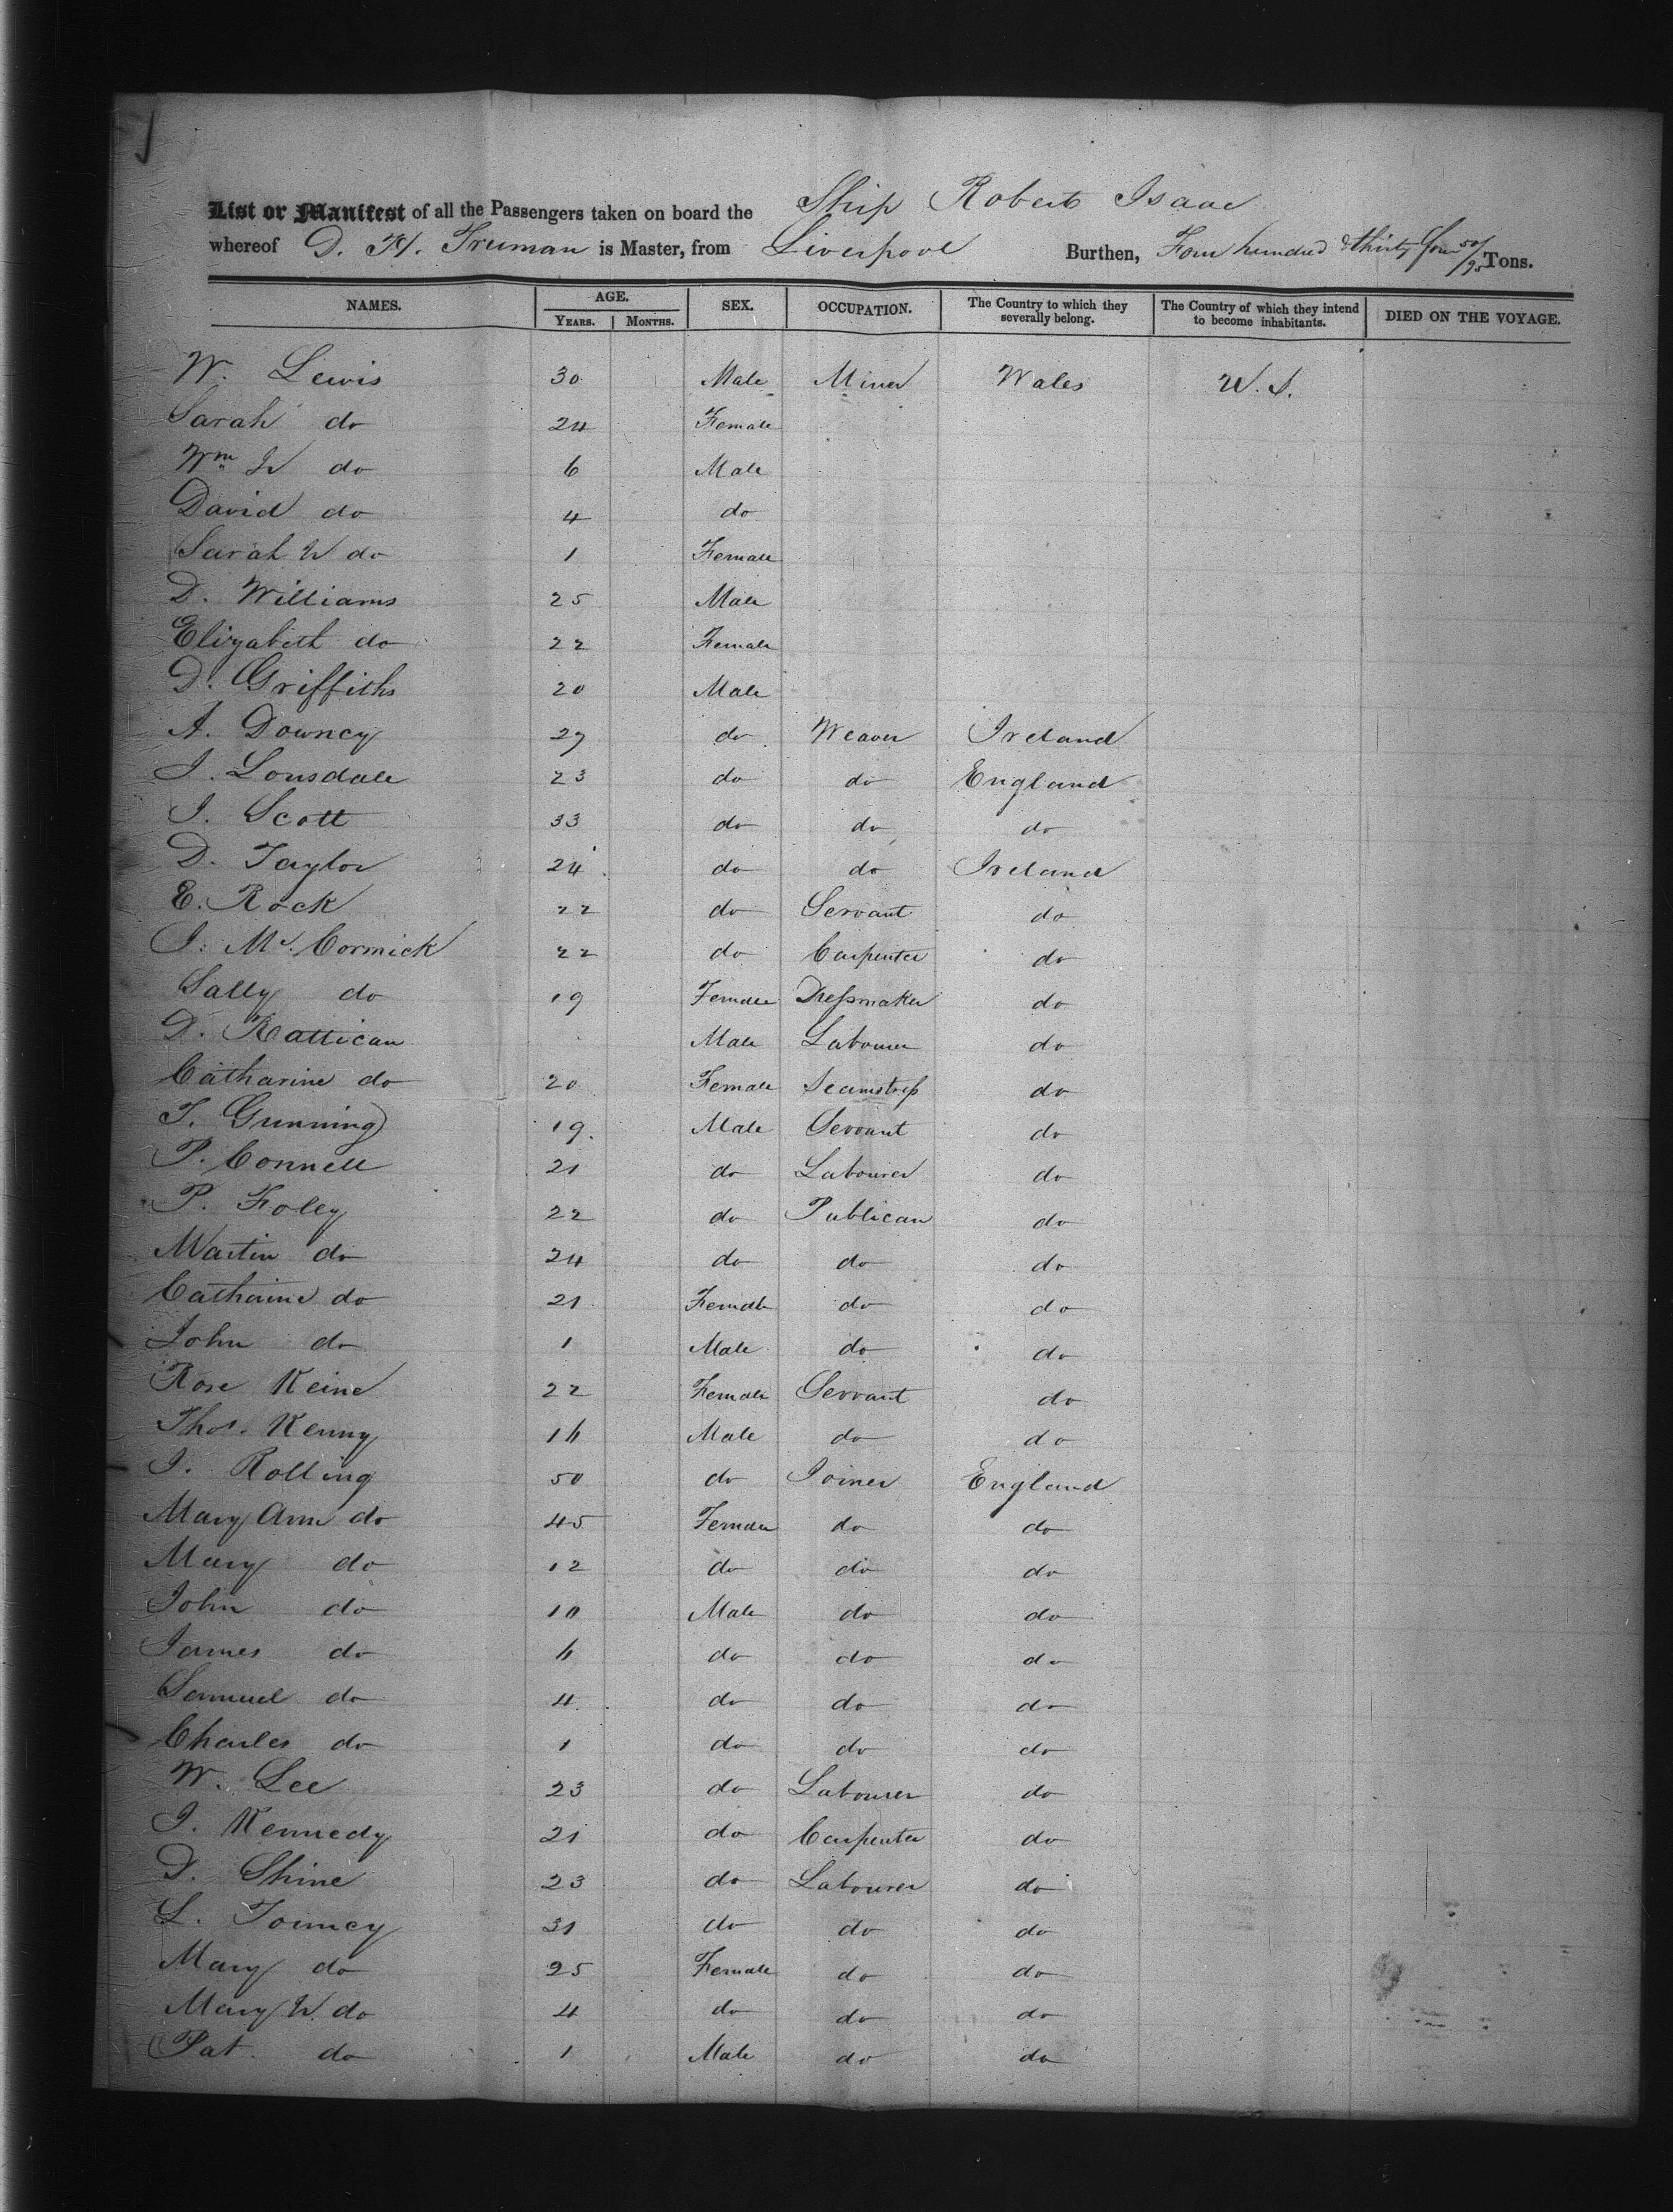 List or Manifest of all the Passengers taken on board the Ship Robert Isaac
whereof D. H. Truman is Master, from Liverpool Burthen, Four hundred & thirty four 50/95 Tons.
NAMES. AGE. SEX. OCCUPATION. The Country to which they severally belong. The Country of which they intend to become inhabitants. DIED ON THE VOYAGE.
YEARS. MONTHS.
W. Lewis 30 Male Miner Wales U.S.
Sarah do 24 Female
Wm W do 6 Male
David do 4 do
Sarah W do 1 Female
D. Williams 25 Male
Elizabeth do 22 Female
D. Griffiths 20 Male
A. Downey 27 do Weaver Ireland
J. Lonsdale 23 do do England
J. Scott 33 do do do
D. Taylor 24 do do Ireland
E. Rock 22 do Servant do
J. Mc Cormick 22 do Carpenter do
Sally do 19 Female Dressmaker do
D. Rattican Male Labourer do
Catharine do 20 Female Seamstress do
T. Gunning 19. Male Servant do
P. Connell 21 do Labourer do
P. Foley 22 do Publican do
Martin do 24 do do do
Catharine do 21 Female do do
John do 1 Male do do
Rose Keine 22 Female Servant do
Thos. Kenny 16 Male do do
J. Rolling 50 do Joiner England
Mary Ann do 45 Female do do
Mary do 12 do do do
John do 10 Male do do
James do 6 do do do
Samuel do 4 do do do
Charles do 1 do do do
W. Lee 23 do Labourer do
J. Kennedy 21 do Carpenter do
D. Shine 23 do Labourer do
L. Touney 31 do do do
Mary do 25 Female do do
Mary W. do 4 do do do
Pat. do 1 Male do do